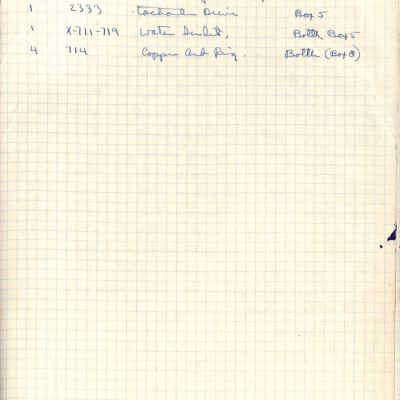 1 2333 Drive Box 5
1 X-711-719 Water Bottle Box 5
4 714 Copper Ring. Bottle (Box 8)